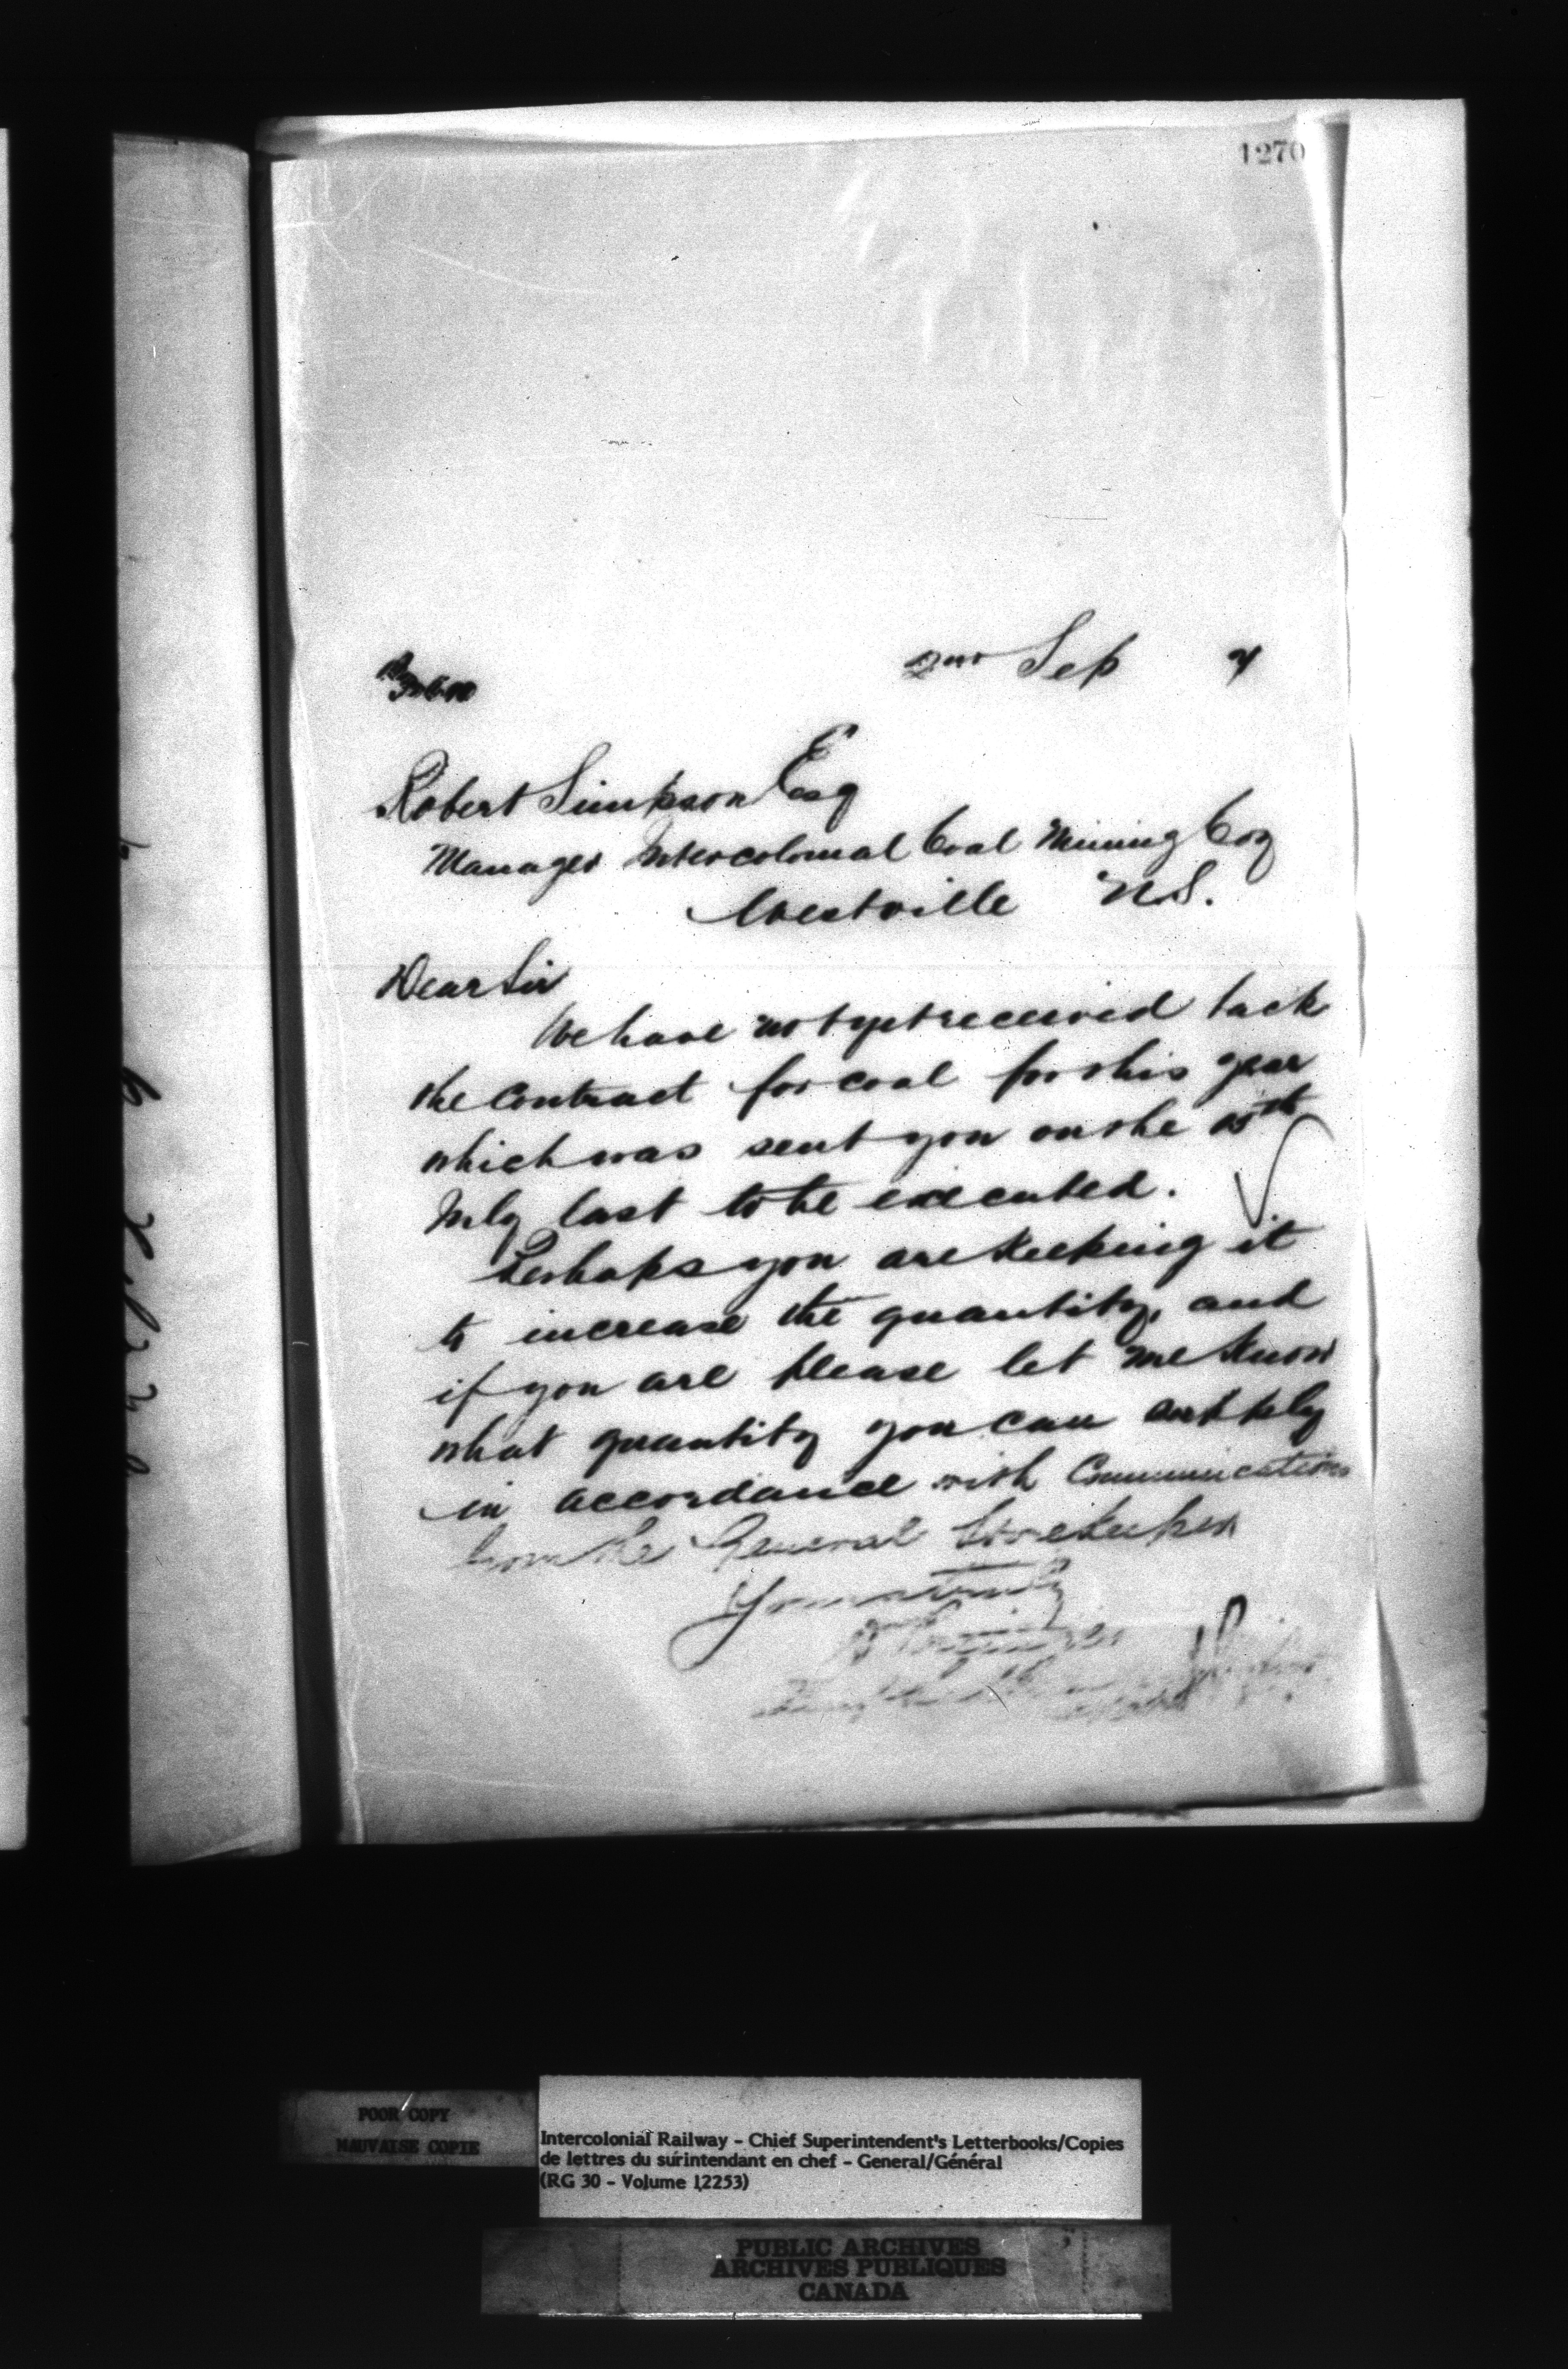 1270
2nd Sep
Robert Simpson Esq
Manager Intercolonial Coal Mining Coy
Westville N.S.
Dear Sir
We have not yet received back
the contract for coal for this year
which was sent you on the
July last to be executed.
Perhaps you are keeping it
to increase the quantity, and
if you are please let me know
what quantity you can supply
in accordance with Communication
from the General Storekeeper
Yours truly
POOR COPY
MAUVAISE COPIE
Intercolonial Railway - Chief Superintendent's Letterbooks/Copies
de lettres du surintendant en chef - General/Général
(RG 30 - Volume 12253)
PUBLIC ARCHIVES
ARCHIVES PUBLIQUES
CANADA